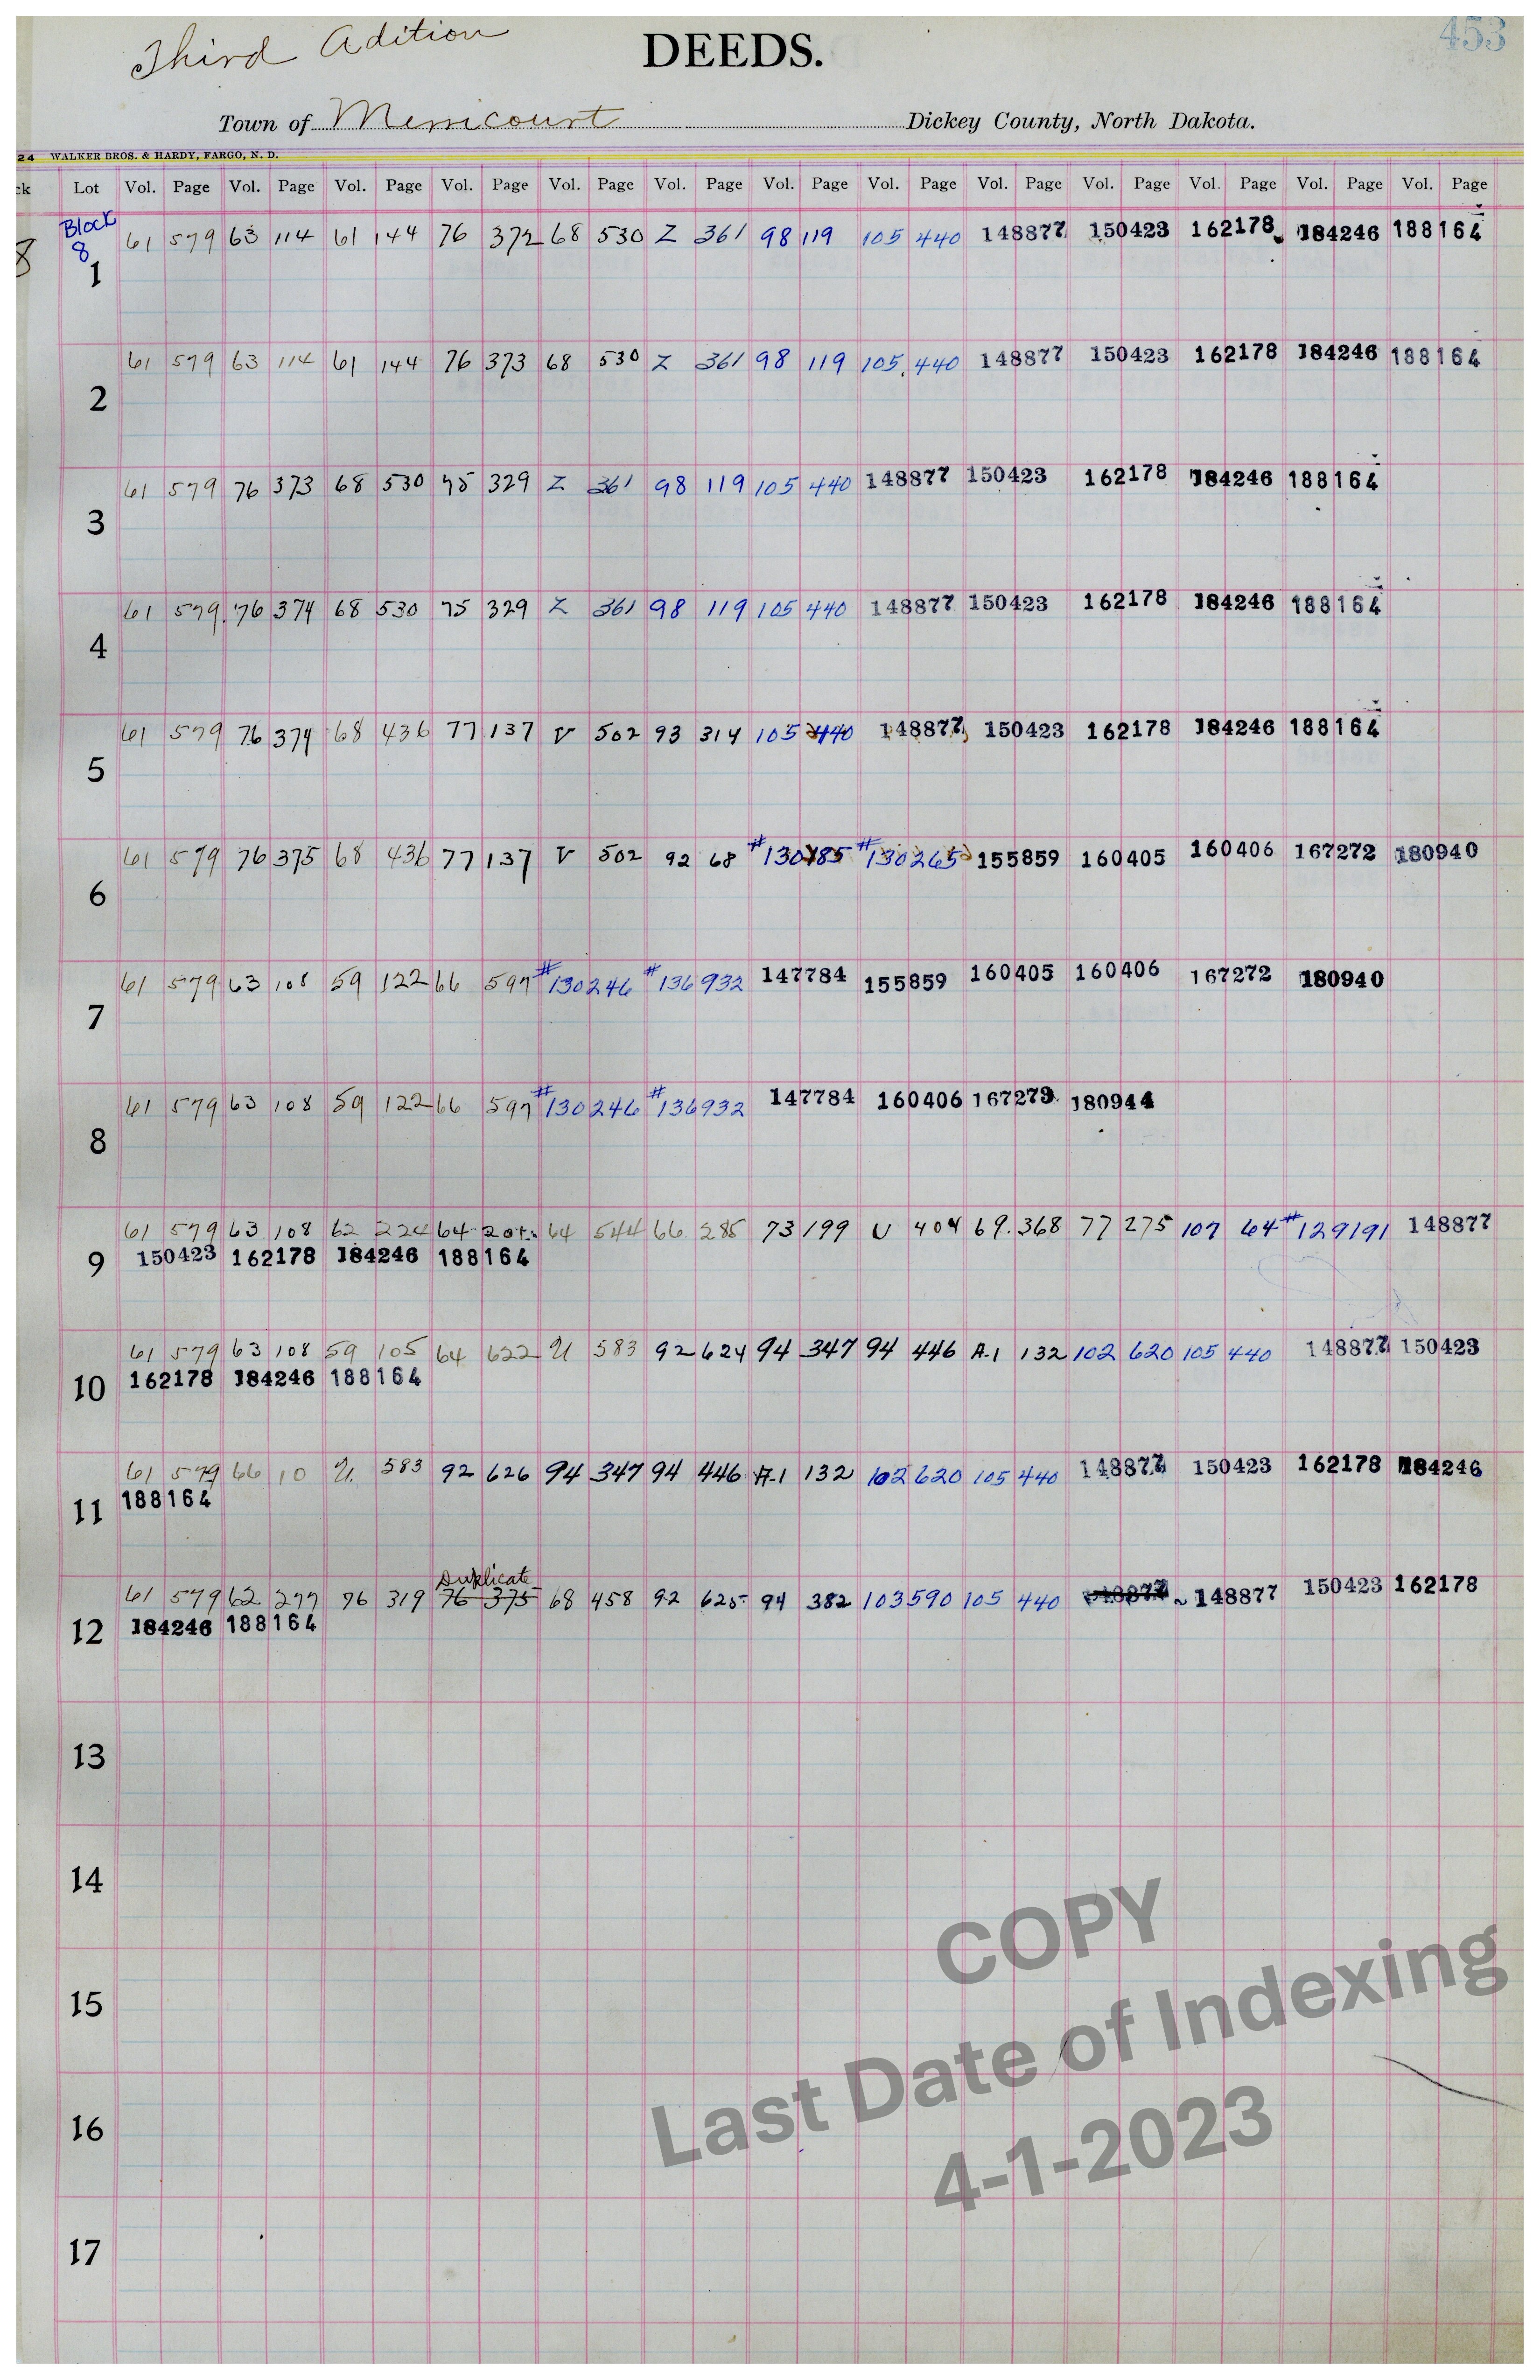 453
Third Adition
DEEDS.
Town of Merricourt Dickey County, North Dakota.
24 WALKER BROS. & HARDY, FARGO, N. D.
ck Lot Vol. Page Vol. Page Vol. Page Vol. Page Vol. Page Vol. Page Vol. Page Vol. Page Vol. Page Vol. Page Vol. Page Vol. Page Vol. Page
Block
8 8 61 579 63 114 61 144 76 372 68 530 Z 361 98 119 105 440 148877 150423 162178 184246 188164
1
61 579 63 114 61 144 76 373 68 530 Z 361 98 119 105 440 148877 150423 162178 184246 188164
2
61 579 76 373 68 530 75 329 Z 361 98 119 105 440 148877 150423 162178 184246 188164
3
61 579 76 374 68 530 75 329 Z 361 98 119 105 440 148877 150423 162178 184246 188164
4
61 579 76 374 68 436 77 137 V 502 93 314 105 440 148877 150423 162178 184246 188164
5
61 579 76 375 68 436 77 137 V 502 92 68 #130185 #130265 155859 160405 160406 167272 180940
6
61 579 63 108 59 122 66 597 #130246 #136932 147784 155859 160405 160406 167272 180940
7
61 579 63 108 59 122 66 597 #130246 #136932 147784 160406 167273 180944
8
61 579 63 108 62 224 64 64 544 66 285 73 199 U 404 69 368 77 275 107 64 #129191 148877
9 150423 162178 184246 188164
61 579 63 108 59 105 64 622 U 583 92 624 94 347 94 446 A-1 132 102 620 105 440 148877 150423
10 162178 184246 188164
61 579 66 10 U. 583 92 626 94 347 94 446 A-1 132 102 620 105 440 148877 150423 162178 184246
11 188164
Duplicate
61 579 62 277 76 319 76 375 68 458 92 625 94 382 103 590 105 440 148877 148877 150423 162178
12 184246 188164
13
14
15
16
17
COPY
Last Date of Indexing
4-1-2023